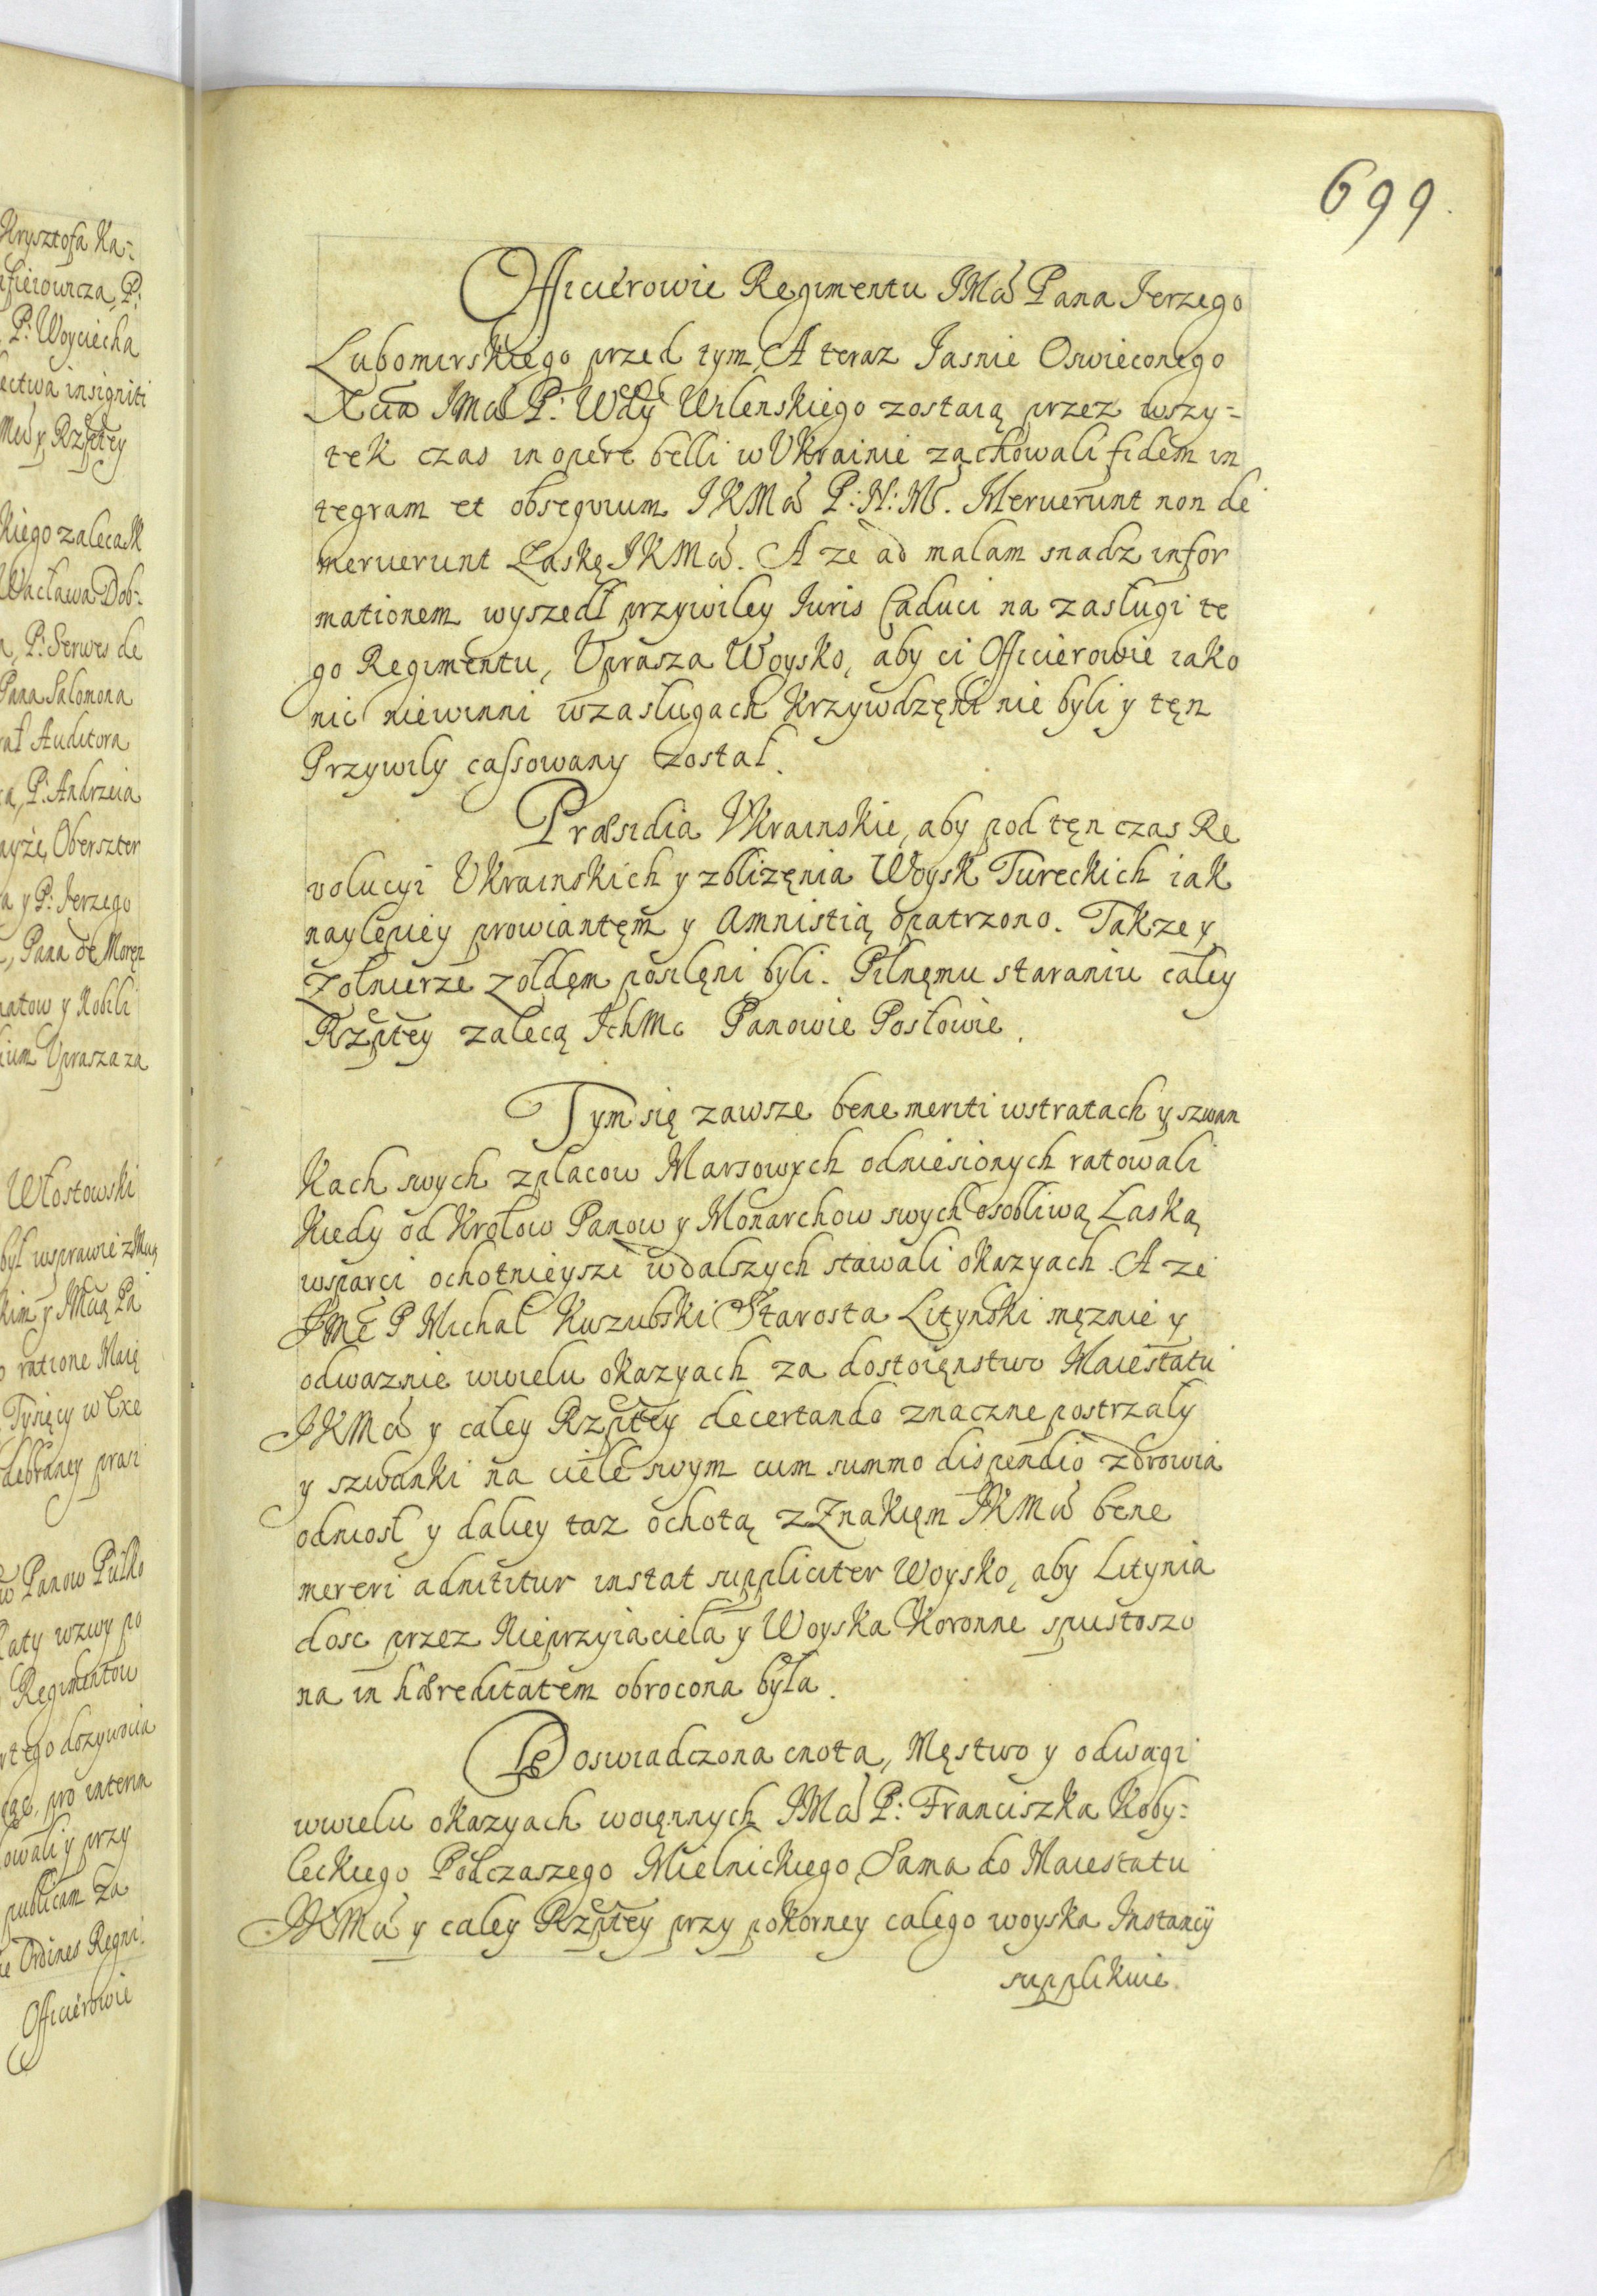 Krysztofa Ka-
P:
P: Woyciecha
insigniti
y Rzptey
Kiego zaleca
Wacława Dob-
P: Serwes de
Pana Salomona
Auditora
P: Andrzeia
Oberszter
y P: Ierzego
Pana de
y
Uprasza za
Włostowski
był wsprawie
y
ratione Maię
Tysięcy w Exe
prasi
Panow Pułko
po
Regimentow
dozywocia
pro interim
y przy
publicam za
Ordines Regni.
Officierowie
699.
Officierowie Regimentu JMči Pana Ierzego
Lubomirskiego przed tym, A teraz Iasnie Oswieconego
Xcia JMči P: Wdy Wilenskiego zostaią przez wszy-
tek czas in opere belli w Ukrainie zachowali fidem in
tegram et obsequium JKMči P: N: Mo. Meruerunt non de
meruerunt Łaskę JKMči. A ze ad malam snadz infor
mationem wyszedł przywiley Iuris Caduci na zasługi te
go Regimentu, Uprasza Woysko, aby ci Officierowie iako
nic niewinni wzasługach Krzywdzęni nie byli y tęn
Przywily cassowany został.
Præsidia Ukrainskie, aby pod tęn czas Re
volucyi Ukrainskich y zblizęnia Woysk Tureckich iak
naylepiey prowiantęm y Amnistią opatrzono. Takze y
Zołnierze zołdęm posilęni byli. Pilnęmu staraniu całey
Rzptey zalecą Ichmc Panowie Posłowie.
Tym się zawsze bene meriti wstratach y szwan
Kach swych zplacow Marsowych odniesionych ratowali
Kiedy od Krolow Panow y Monarchow swych osobliwą Łaską
wsparci ochotnieysze wdalszych stawali okazyach. A ze
Jmć P Michał Kuszubski Starosta Lityński męznie y
odwaznie wwielu okazyach za dostoięnstwo Maiestatu
JKMči y całey Rzptey decertando znaczne postrzały
y szwanki na ciele swym cum summo dispendio zdrowia
odniosł y daliey taz ochotą z Znakięm JKMči bene
mereri adnititur instat suppliciter Woysko, aby Litynia
dosc przez Nieprzyiaciela y Woyska Koronne spustoszo
na in hæreditatem obrocona była.
Doswiadczona cnota, Męstwo y odwagi
wwielu okazyach woięnnych JMči P: Franciszka Koby-
leckiego Podczaszego Mielnickiego, Sama do Maiestatu
JKMči y całey Rzptey przy pokorney całego woyska Instancÿ
supplikuie